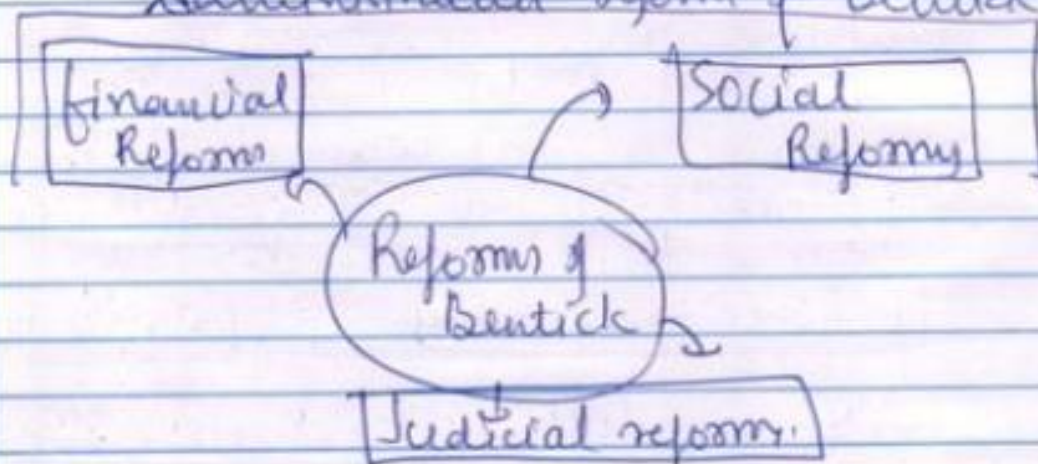 reform of
Financial
Reforms
Social
Reforms
Reforms of
Bentick
Judicial reforms.